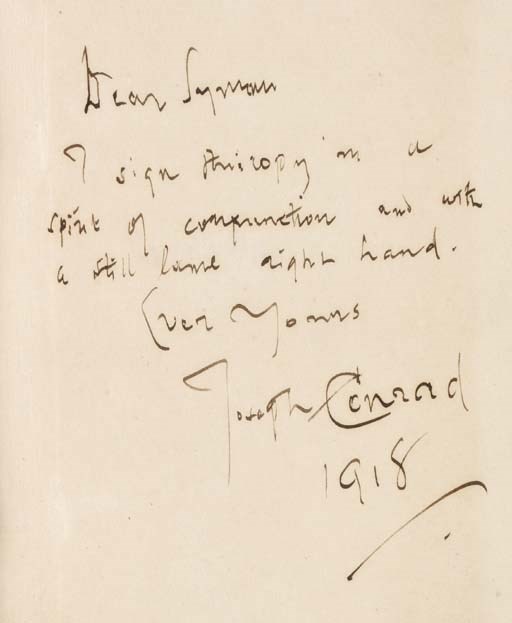 Dear Symon
I sign this copy in a
spirit of compunction and with
a still lame right hand.
Ever Yours
Joseph Conrad
1918